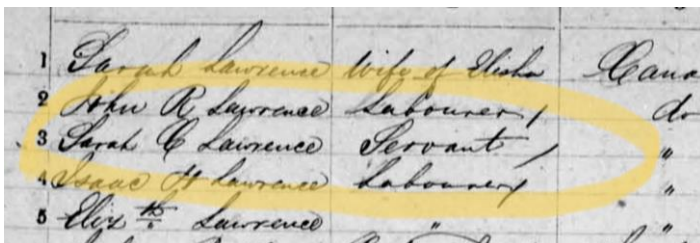 1 Sarah Lawrence Wife of Elisha Cana
2 John R Lawrence Labourer do
3 Sarah C Lawrence Servant "
4 Isaac H Lawrence Labourer "
5 Eliz th Lawrence " "